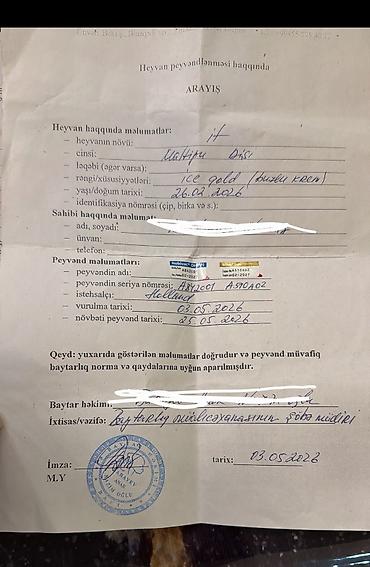 Heyvan peyvəndlənməsi haqqında
ARAYIŞ
Heyvan haqqında məlumatlar:
– heyvanın növü: it
– cinsi: Maltipu Dişi
– ləqəbi (əgər varsa):
– rəngi/xüsusiyyətləri: ice gold (buzlu krem)
– yaşı/doğum tarixi: 26.02.2026
– identifikasiya nömrəsi (çip, birka və s.):
Sahibi haqqında məlumat:
– adı, soyadı:
– ünvan:
– telefon:
Peyvənd məlumatları:
– peyvəndin adı:
– peyvəndin seriya nömrəsi: A812C01 A590A02
– istehsalçı: Holland
– vurulma tarixi: 03.05.2026
– növbəti peyvənd tarixi: 25.05.2026
Qeyd: yuxarıda göstərilən məlumatlar doğrudur və peyvənd müvafiq
baytarlıq norma və qaydalarına uyğun aparılmışdır.
Baytar həkimi:
İxtisas/vəzifə: Baytarlıq müalicəxanasının şöbə müdiri
İmza: tarix: 03.05.2026
M.Y